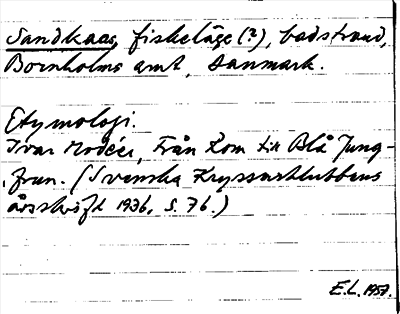 Sandkaas, fiskeläge (?), badstrand,
Bornholms amt, Danmark.
Etymologi.
Ivar Modéer, Från Kom till Blå Jung-
frun. (Svenska Kryssarklubbens
årsskrift 1936, s. 76.)
E.L. 1957.